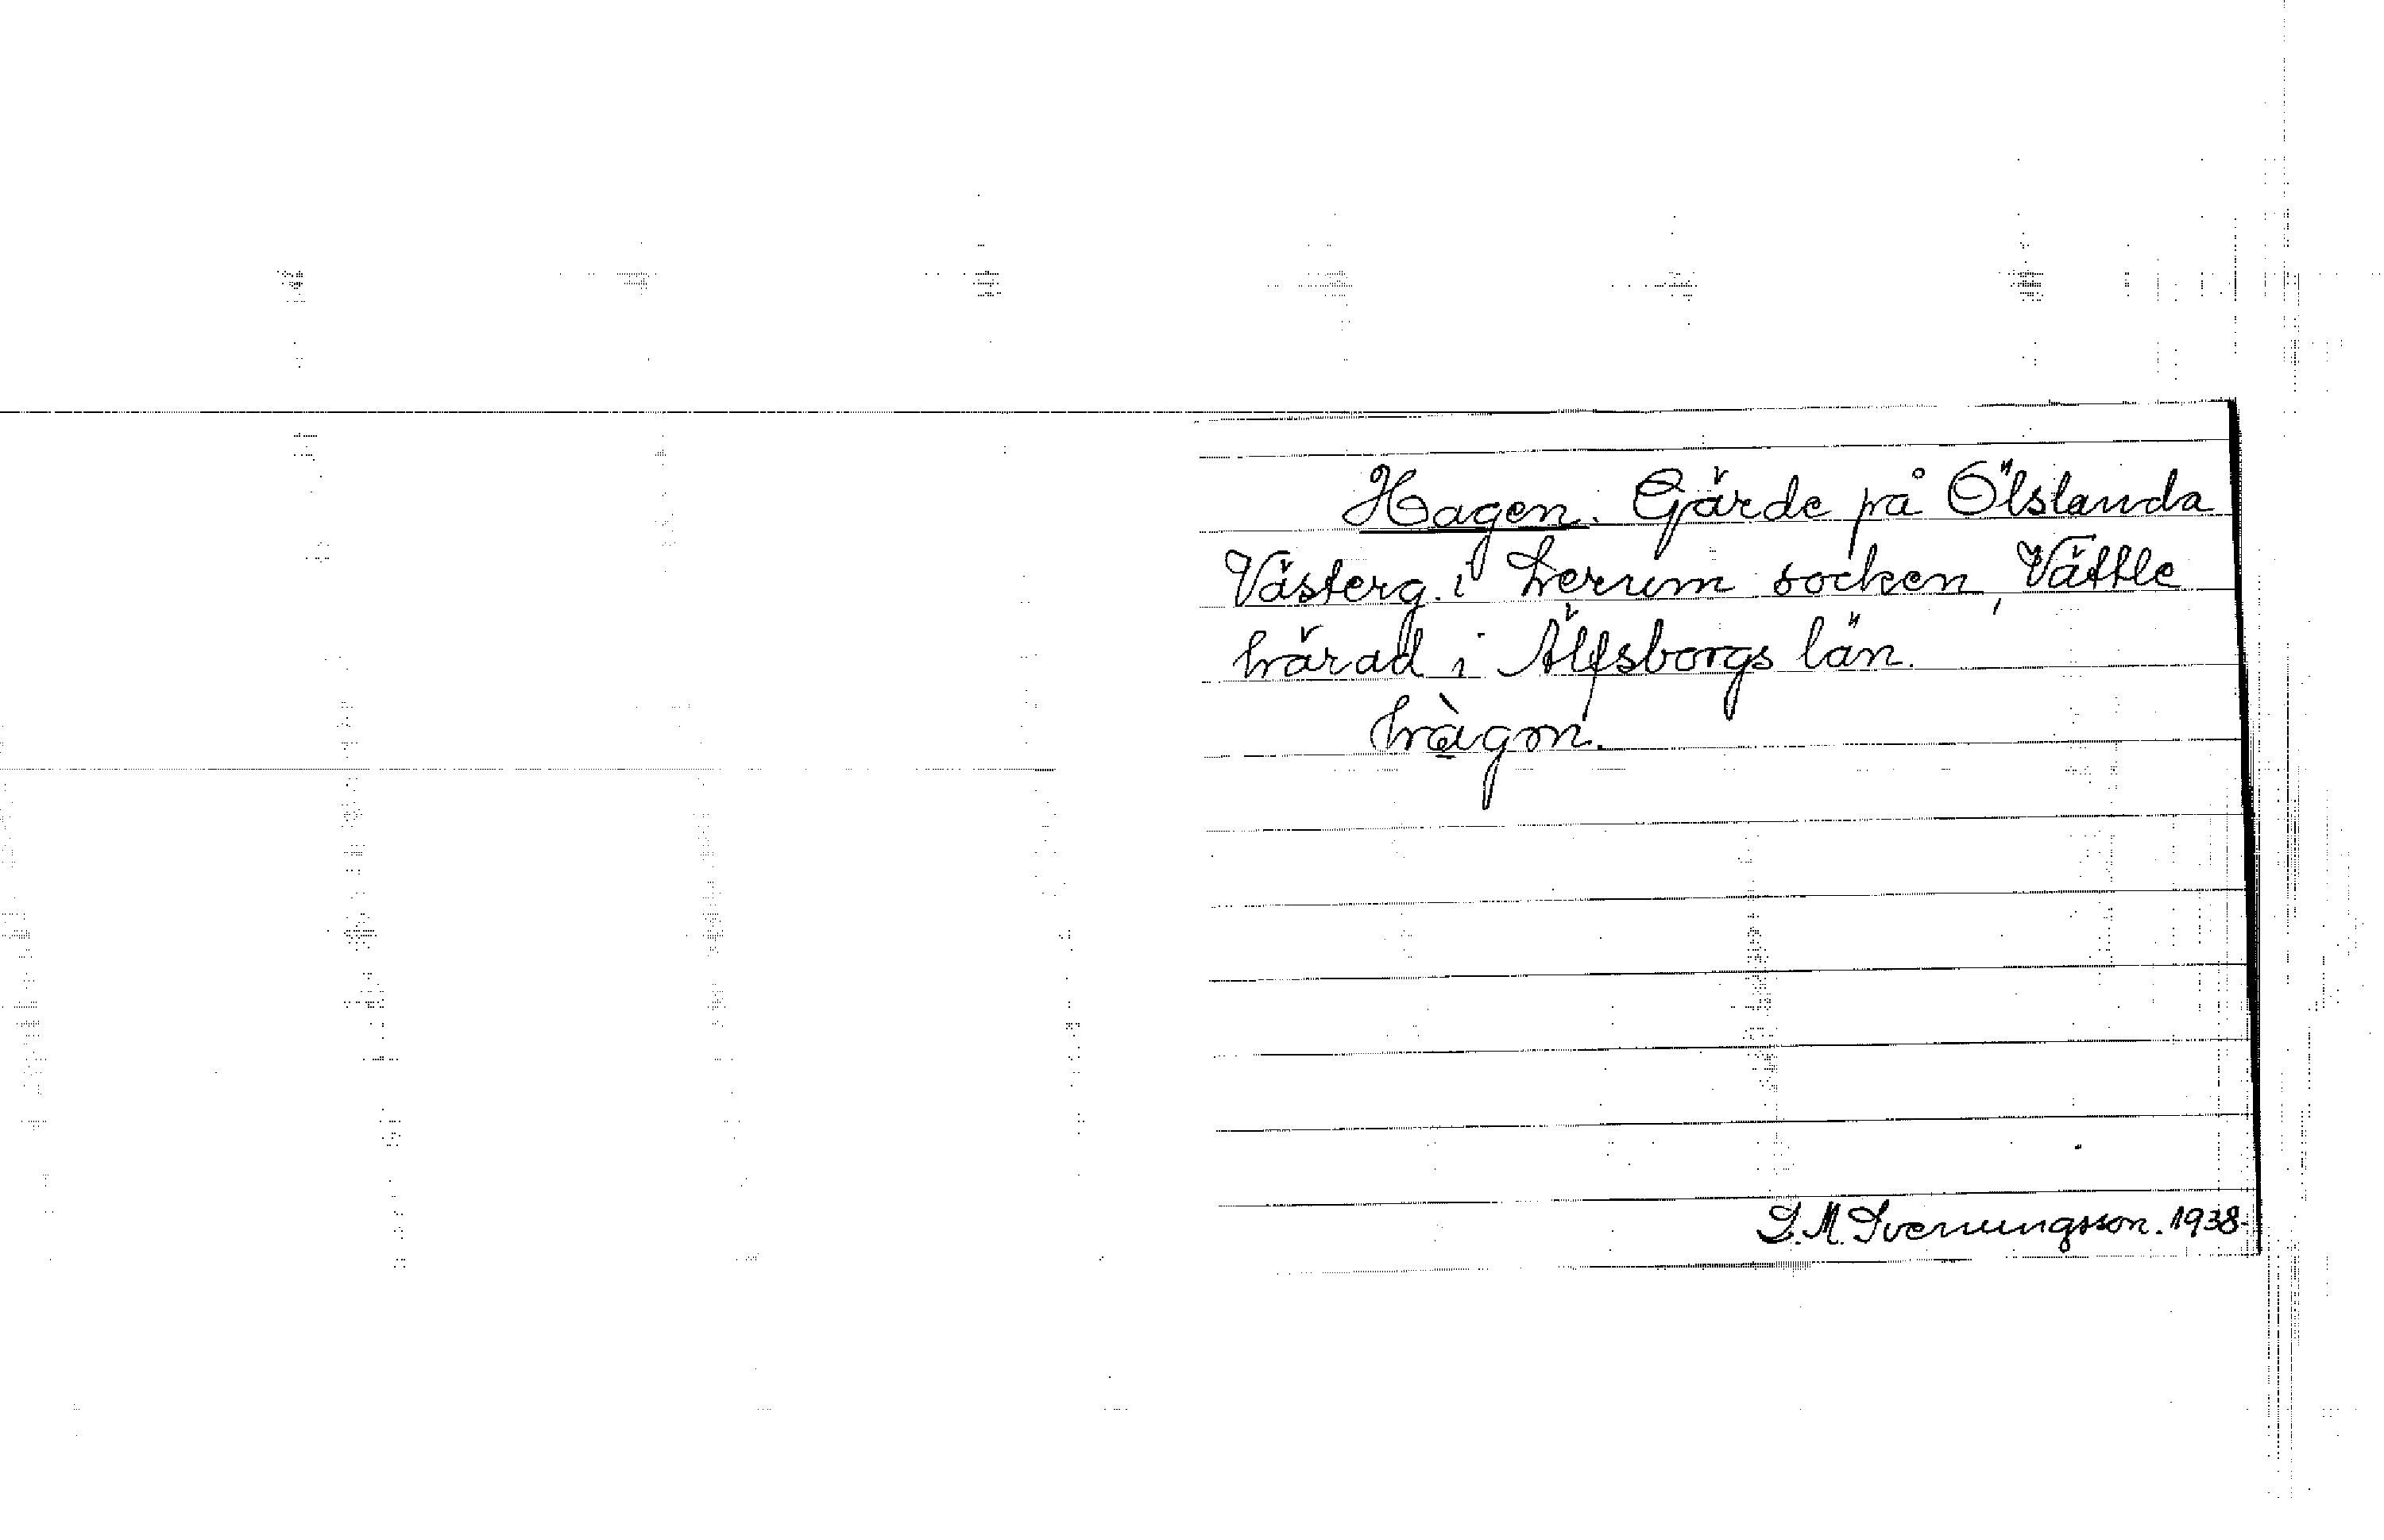 Hagen. Gärde på Ölslanda
Västerg. i Lerum socken, Vättle
härad i Älfsborgs län.
hàgon.
S. M. Svenungsson. 1938.